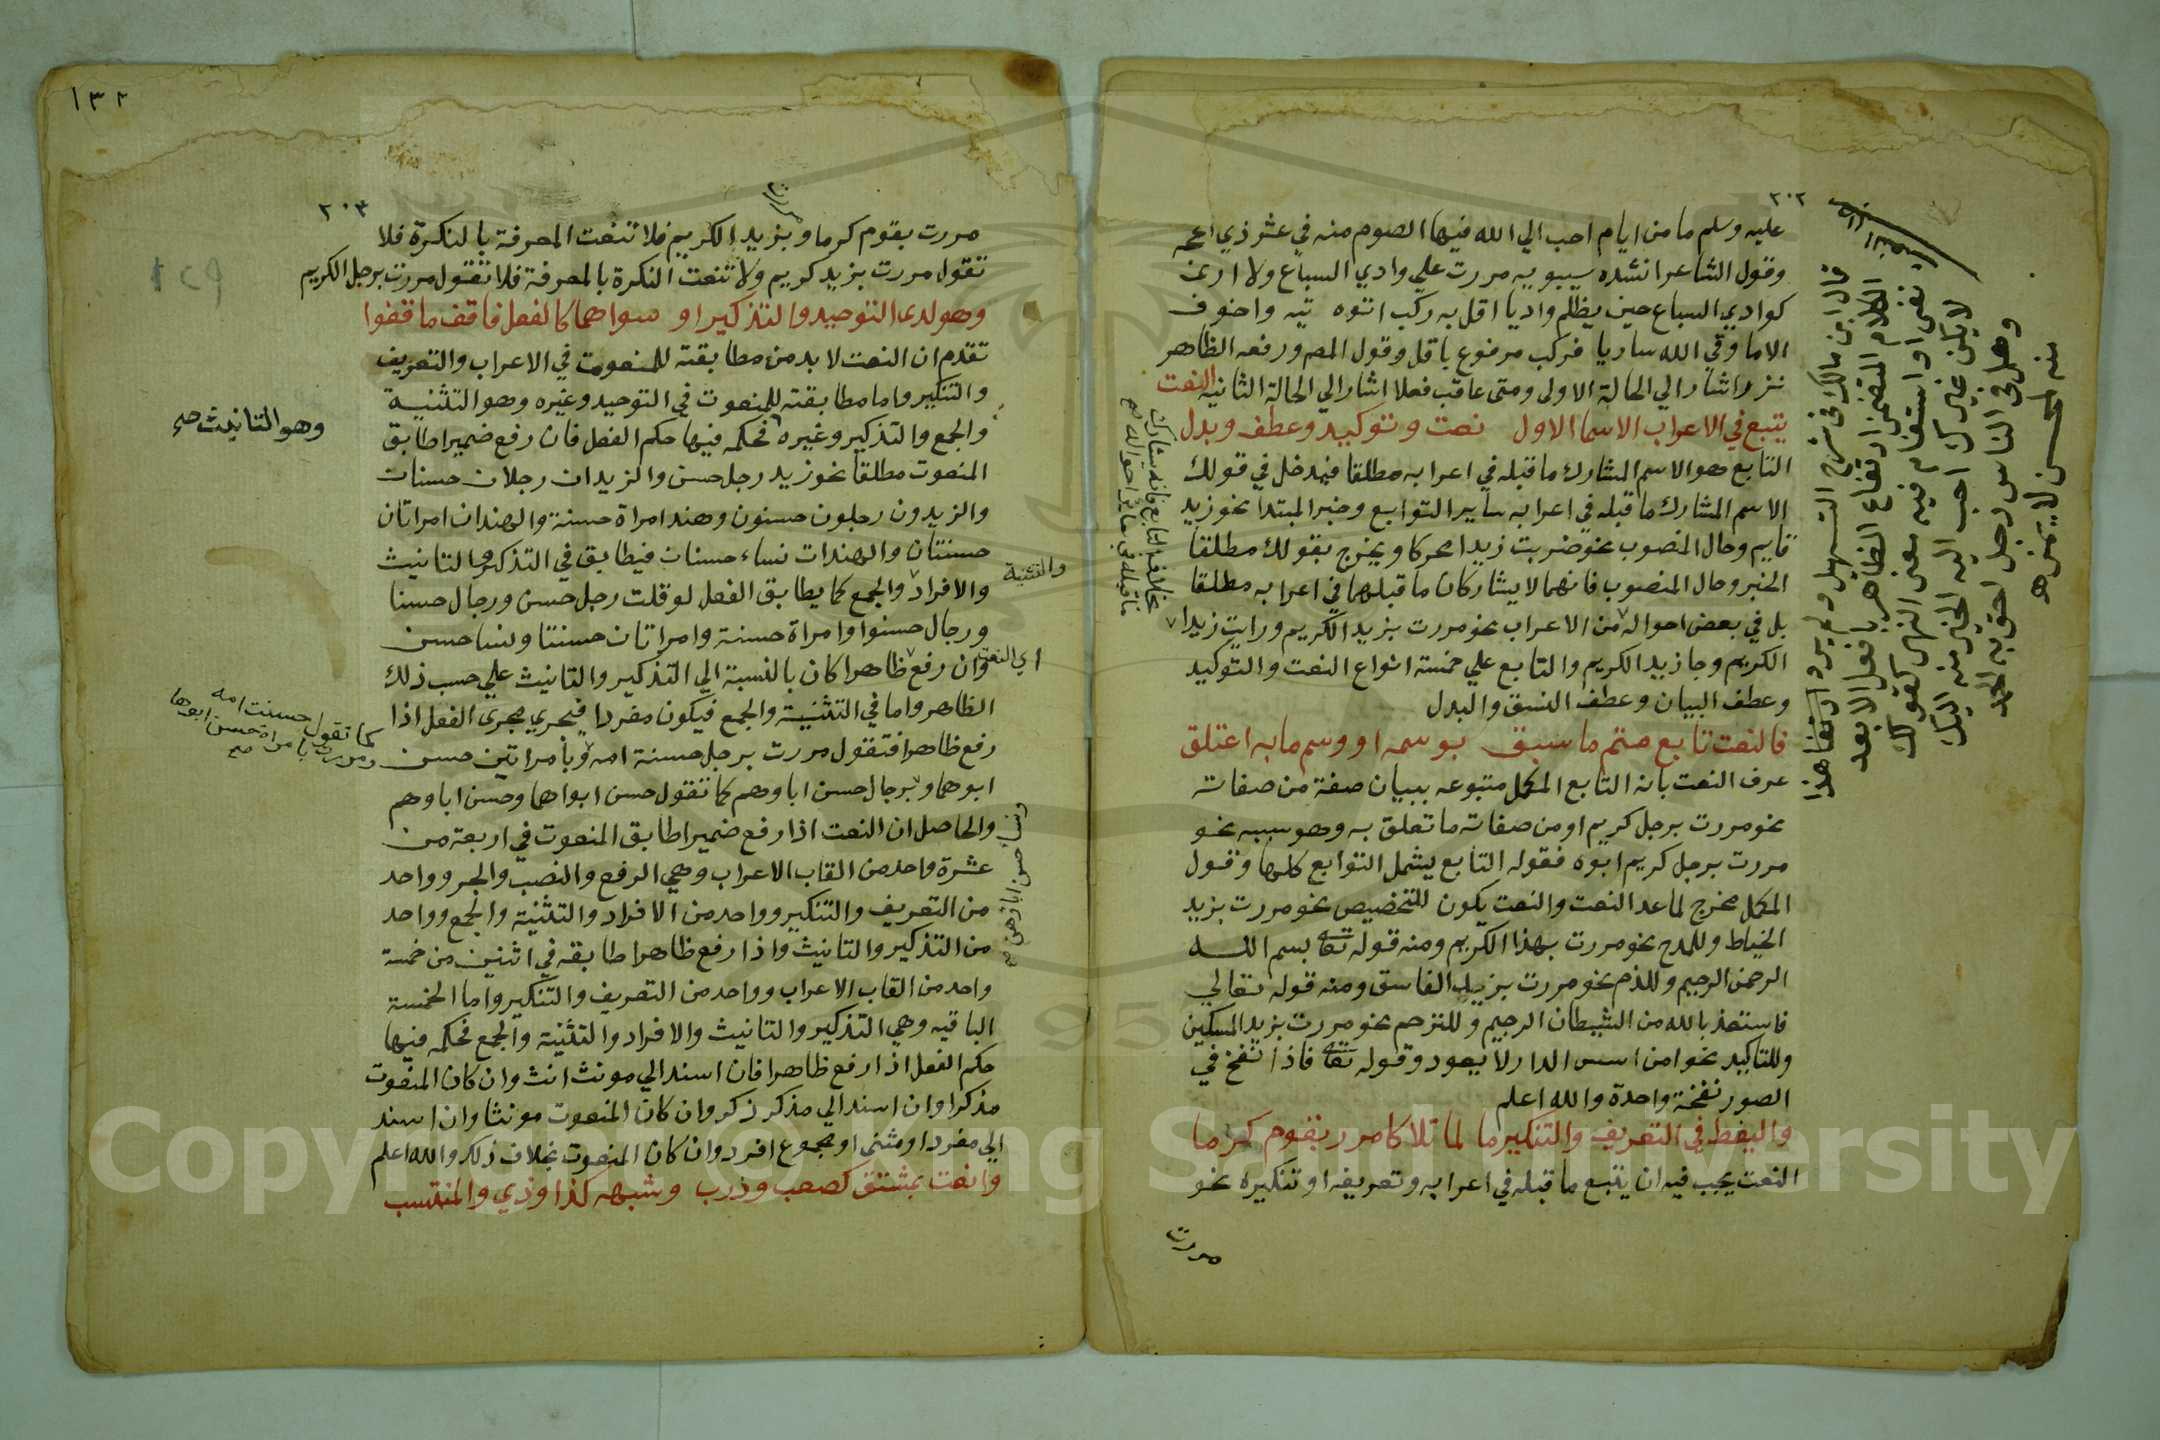 ٢٠٢
عليه وسلم ما من ايام احب الي الله فيها الصوم منه في عشر ذي الحجه
وقول الشاعر انشده سيبويه مررت علي وادي السباع ولا اري
كوادي السباع حين يظلم واديا اقل به ركب اتوه تيه واخوف
الا ما وقي الله ساريا فركب مرفوع باقل وقول المص ورفعه الظاهر
نزر اشار الي الحالة الاولى ومتى عاقب فعلا اشار الي الحالة الثانيه النعت
يتبع في الاعراب الاسما الاول نعت وتوكيد وعطف وبدل
التابع هو الاسم المشارك ما قبله في اعرابه مطلقا فيدخل في قولك
الاسم المشارك ما قبله في اعرابه ساير التوابع وخبر المبتدا نحو زيد
قايم وحال المنصوب نحو ضربت زيدا مجركا ويخرج بقولك مطلقا
الخبر وحال المنصوب فانهما لا يشاركان ما قبلهما في اعرابه مطلقا
بل في بعض احواله من الاعراب نحو مررت بزيد الكريم ورايت زيدا
الكريم وجا زيد الكريم والتابع علي خمسة انواع النعت والتوكيد
وعطف البيان وعطف النسق والبدل
فالنعت تابع متم ما سبق بوسمه او وسم ما به اعتلق
عرف النعت بانه التابع المكمل متبوعه ببيان صفة من صفاته
نحو مررت برجل كريم او من صفات ما تعلق به وهو سببه نحو
مررت برجل كريم ابوه فقوله التابع يشمل التوابع كلها وقول
المكمل مخرج لما عدا النعت والنعت يكون للتخصيص نحو مررت بزيد
الخياط وللمدح نحو مررت بهذا الكريم ومنه قوله تعا بسم الله
الرحمن الرحيم وللذم نحو مررت بزيد الفاسق ومنه قوله تعالي
فاستعذ بالله من الشيطان الرجيم وللترحم نحو مررت بزيد المسكين
وللتاكيد نحو امن اسس الدار لا يعود وقوله تعا فاذا نفخ في
الصور نفخة واحدة والله اعلم
واليعط في التعريف والتنكير ما لما تلا كامرر بقوم كرما
النعت يجب فيه ان يتبع ما قبله في اعرابه وتعريفه او تنكيره نحو
مررت
قال ابن مالك في شرح التسهيل ولم يرد ارتفاع هذا
الكلام المتضمن ارتفاع الظاهر بافعل الا بعد
نفى او استفهام فيه معنى النهى كقولك
لا يكن غيرك احب اليه الخير منه اليك
وهل في الناس رجل احق به الحمد
منه
١٣٢
٢٠٣
مررت بقوم كرما وبزيد الكريم فلا تنعت المعرفة بالنكرة فلا
تقول مررت بزيد كريم ولا تنعت النكرة بالمعرفة فلا تقول مررت برجل الكريم
وهو لدى التوحيد والتذكير او سواهما كالفعل فاقف ما قفوا
تقدم ان النعت لا بد من مطابقته للمنعوت في الاعراب والتعريف
والتنكير واما مطابقته للمنعوت في التوحيد وغيره وهو التثنية
والجمع والتذكير وغيره فحكمه فيها حكم الفعل فان رفع ضميرا طابق
وهو التانيث صح
المنعوت مطلقا نحو زيد رجل حسن والزيدان رجلان حسنات
والزيدون رجلون حسنون وهند امراة حسنة والهندان امراتان
حسنتان والهندات نساء حسنات فيطابق في التذكير والتانيث
والتثنية
والافراد والجمع كما يطابق الفعل لو قلت رجل حسن ورجال حسنا
ورجال حسنوا وامراة حسنة وامراتان حسنتا ونسا حسن
اي النعت
وان رفع ظاهرا كان بالنسبة الي التذكير والتانيث علي حسب ذلك
الظاهر واما في التثنية والجمع فيكون مفردا فيجري مجرى الفعل اذا
رفع ظاهرا فتقول مررت برجل حسنة امه وبامراتين حسن
كما تقول حسنت امه
ومررت بامراة حسن ابوها
صح
ابوهما وبرجال حسن اباوهم كما تقول حسن ابواهما وحسن اباوهم
والحاصل ان النعت اذا رفع ضميرا طابق المنعوت في اربعة من
عشرة واحد من القاب الاعراب وهي الرفع والنصب والجر وواحد
من التعريف والتنكير وواحد من الافراد والتثنية والجمع وواحد
من التذكير والتانيث واذا رفع ظاهرا طابقه في اثنين من خمسة
واحد من القاب الاعراب وواحد من التعريف والتنكير واما الخمسة
الباقيه وهي التذكير والتانيث والافراد والتثنية والجمع فحكمه فيها
حكم الفعل اذا رفع ظاهرا فان اسند الي مونث انث وان كان المنعوت
مذكرا وان اسند الي مذكر ذكر وان كان المنعوت مونثا وان اسند
الي مفرد او مثنى او مجموع افرد وان كان المنعوت بخلاف ذلك والله اعلم
وانعت بمشتق كصعب وذرب وشبهه كذا وذي والمنتسب
Copyright © King Saud University